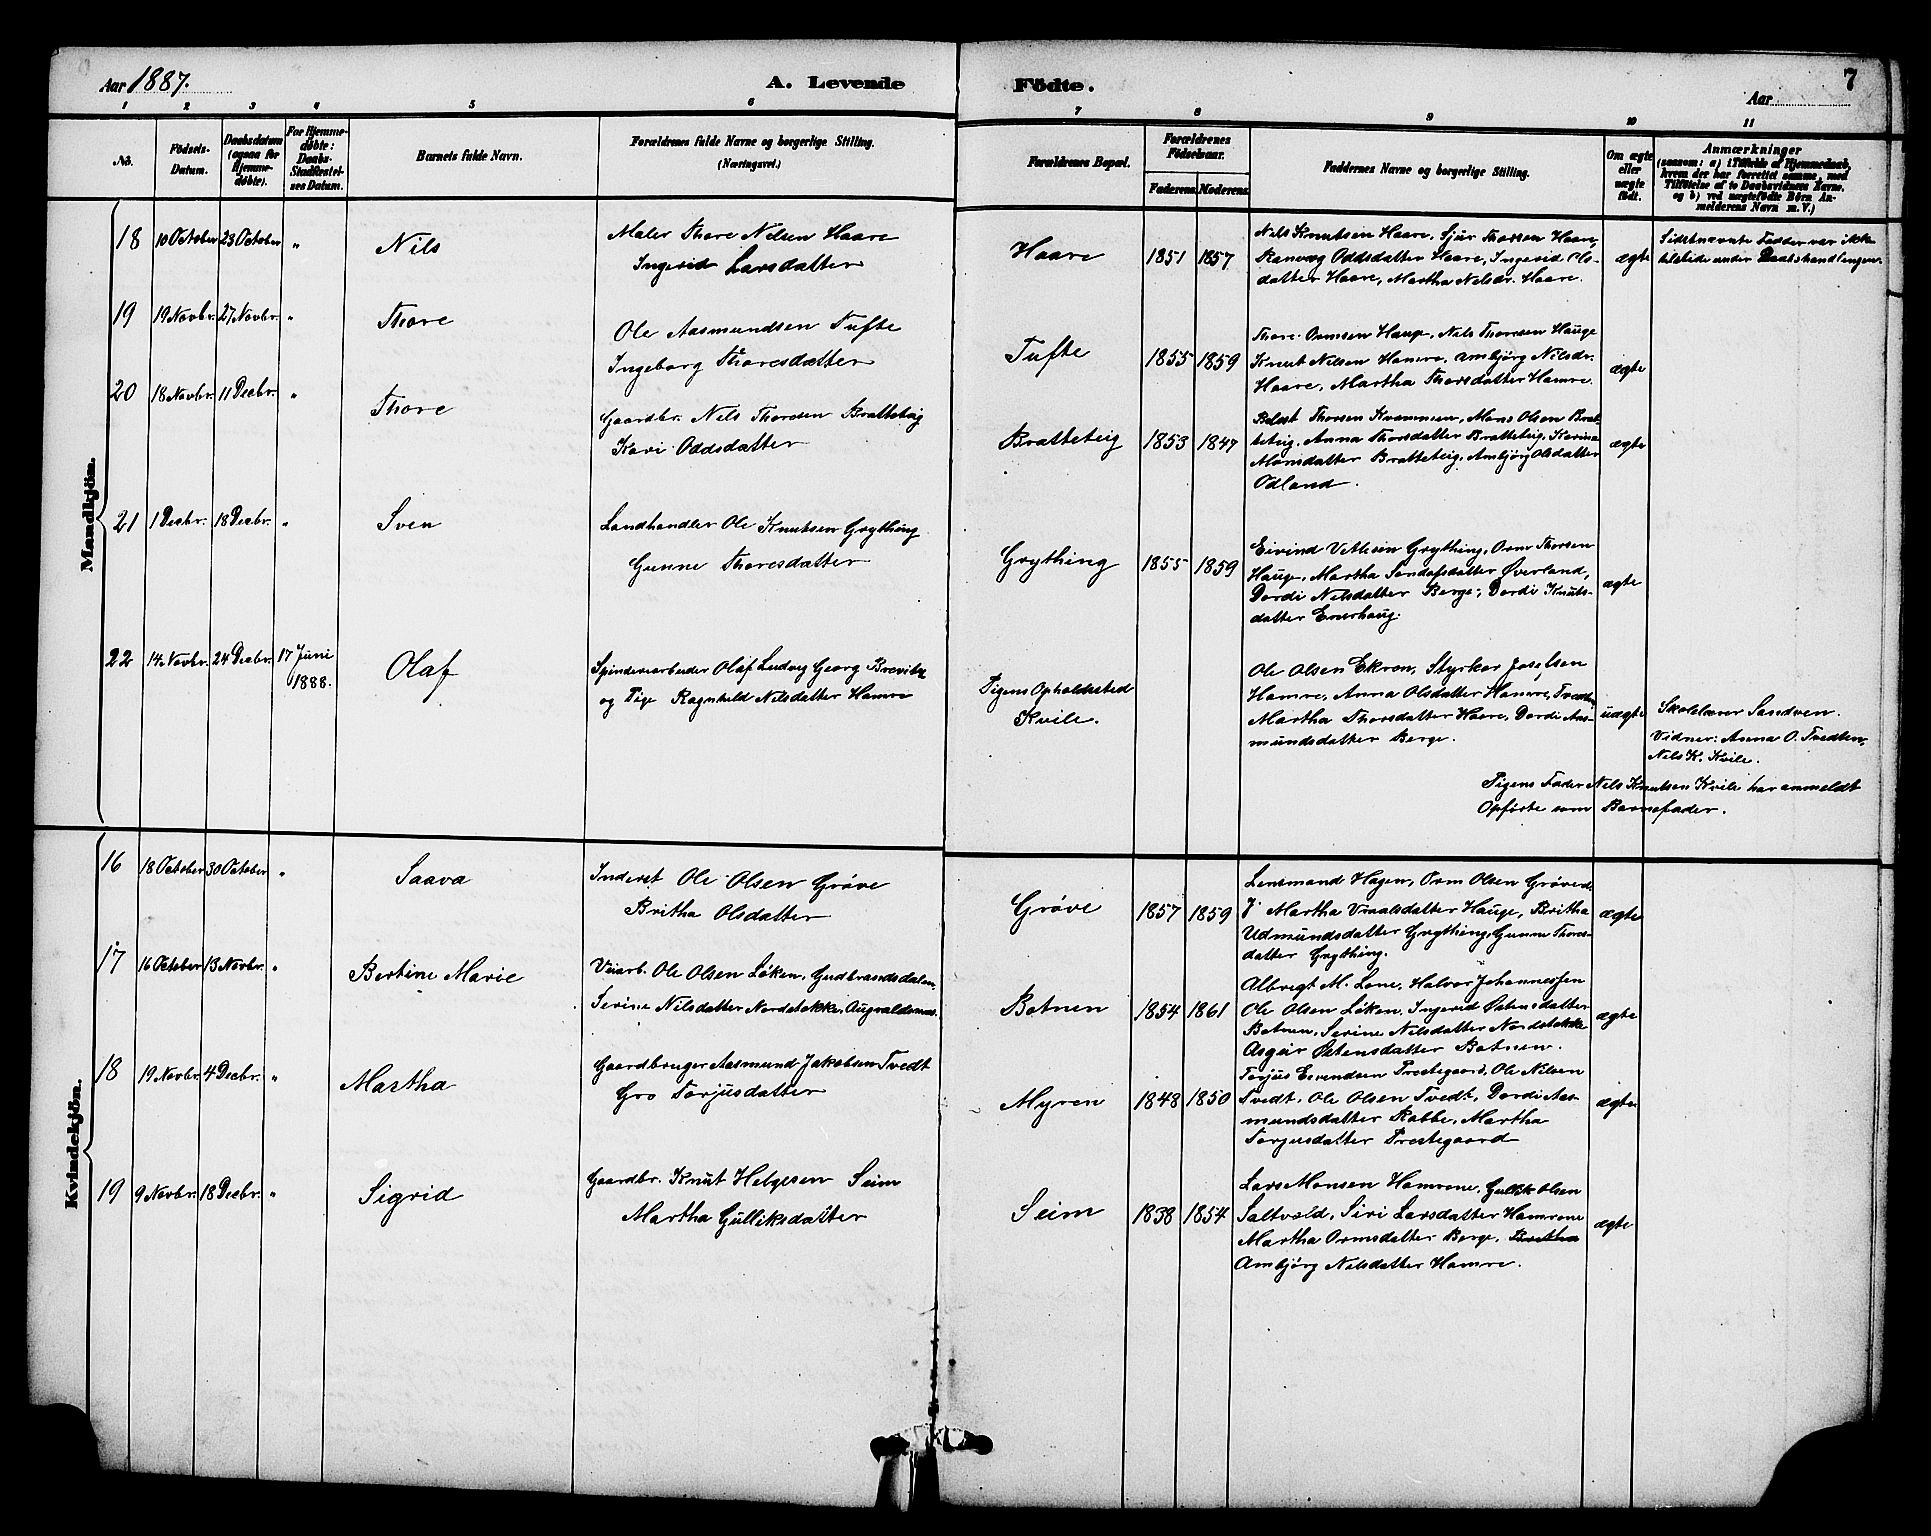 Aar 1887.
A. Levende
Födte.
7
Aar
1 2 3 4 5 6 7 8 9 10 11
No.
Födsels-
Datum.
Daabsdatum
(ogsaa for
Hjemme-
døbte).
For Hjemme-
døbte:
Daabs-
Stadfæstel-
ses Datum.
Barnets fulde Navn.
Forældrenes fulde Navne og borgerlige Stilling.
(Næringsvei.)
Forældrenes Bopæl.
Forældrenes
Födselsaar.
Faderens. Moderens.
Faddernes Navne og borgerlige Stilling.
Om ægte
eller
uægte
født.
Anmærkninger
(saasom: a) i Tilfælde af Hjemmedaab,
hvem der har forrettet samme, med
Tilføielse af to Daabsvidners Navne,
og b) ved uægtefødte Börn An-
melderens Navn m. V.)
Mandkjön.
18 10 October 23 October " Nils
Maler Thore Nilsen Haare
Ingerid Larsdatter
Haare 1851 1857
Nils Knutsen Haare, Sjur Thorsen Haare,
Ranveg Oddsdatter Haare, Ingerid Ols-
datter Haare, Martha Nilsdr. Haare.
ægte
Sidstnævnte Fadder var ikke
tilstede under Daabshandlingen.
19 19 Novbr. 27 Novbr. " Thore
Ole Aasmundsen Tufte
Ingeborg Thoresdatter
Tufte 1855 1859
Thore Ormsen Hauge, Nils Thoresen Hauge
Knut Nilsen Hamre, Ambjörg Nilsdr.
Haare, Martha Thorsdatter Hamre.
ægte
20 18 Novbr. 11 Decbr. " Thore
Gaardbr. Nils Thoresen Bratteteig
Kari Oddsdatter
Bratteteig 1853 1847
Thorsen Kvammen, Mons Olsen Brat-
teteig, Anna Thorsdatter Bratteteig, Karina
Monsdatter Bratteteig, Ambjörg Olsdatter
Odland.
ægte
21 1 Decbr. 18 Decbr. " Sven
Landhandler Ole Knutsen Grything
Gunne Thoresdatter
Grything 1855 1859
Eivind Vetlesen Grything, Orm Thorsen
Hauge, Martha Sandafsdatter Øverland,
Dordi Nilsdatter Berge, Dordi Knuts-
datter Enerhaug.
ægte
22 14 Novbr. 24 Decbr. 17 Juni
1888.
Olaf
Spinderiarbeider Olaf Ludvig Georg
og Pige Ragnhild Nilsdatter Hamre
Pigens Opholdssted
Kvile.
Ole Olsen Ekren, Styrkor Josefsen
Hamre, Anna Olsdatter Hamre, Tvedten
Martha Thorsdatter Haare, Dordi Aas-
mundsdatter Berge.
uægte
Skolelærer Sandven.
Vidner: Anna O. Tvedten,
Nils K. Kvile.
Pigens Fader Nils Knutsen Kvile har anmeldt
Opførte som Barnefader.
Kvindekjön.
16 18 October 30 October " Saava
Inderst Ole Olsen Gröve
Britha Olsdatter
Gröve 1857 1859
Lensmand Hagen, Orm Olsen Gröve
Martha Hauge, Britha
Udmundsdatter Grything, Gunne Thores-
datter Grything.
ægte
17 16 October 13 Novbr. " Bertine Marie
Veiarb. Ole Olsen Löken, Gudbrandsdalen
Serine Nilsdatter Nordstokke, Augvaldsnes.
Botnen 1854 1861
Albregt M. Lone, Halvor Johannesen
Ole Olsen Löken, Ingerid Østensdatter
Botnen, Serine Nilsdatter Nordstokke
Asgeir Østensdatter Botnen.
ægte
18 19 Novbr. 4 Decbr. " Martha
Gaardbruger Aasmund Jakobsen Tvedt
Gro Torjusdatter
Myren 1848 1850
Torjus Eivendsen Prestegaard, Ole Nilsen
Tvedt, Ole Olsen Tvedt, Dordi Aas-
mundsdatter Rabbe, Martha
Torjusdatter Prestegaard
ægte
19 9 Novbr. 18 Decbr. " Sigrid
Gaardbr. Knut Helgesen Seim
Martha Gulliksdatter
Seim 1838 1854
Lars Monsen Hamrene, Gullik Olsen
Saltvold, Siri Larsdatter Hamrene
Martha Ormsdatter Berge, Britha
Ambjörg Nilsdatter Hamre.
ægte